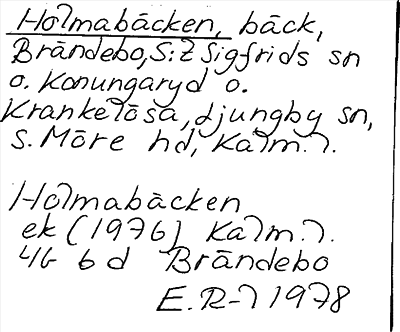 Holmabäcken, bäck,
Brändebo, S:t Sigfrids sn
o. Konungaryd o.
Krankelösa, Ljungby sn,
S. Möre hd, Kalm. l.
Holmabäcken
ek (1976) Kalm. l.
4G 6d Brändebo
E. R-l 1978